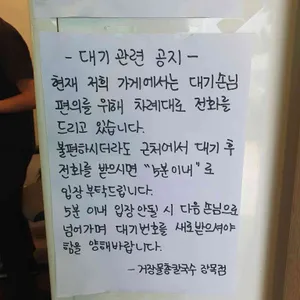 - 대기 관련 공지 -
현재 저희 가게에서는 대기손님
편의를 위해 차례대로 전화를
드리고 있습니다.
불편하시더라도 근처에서 대기 후
전화를 받으시면 "5분이내"로
입장 부탁드립니다.
5분 이내 입장 안될 시 다음손님으로
넘어가며 대기번호를 새로받으셔야
함을 양해바랍니다.
- 거장물총칼국수 장목점